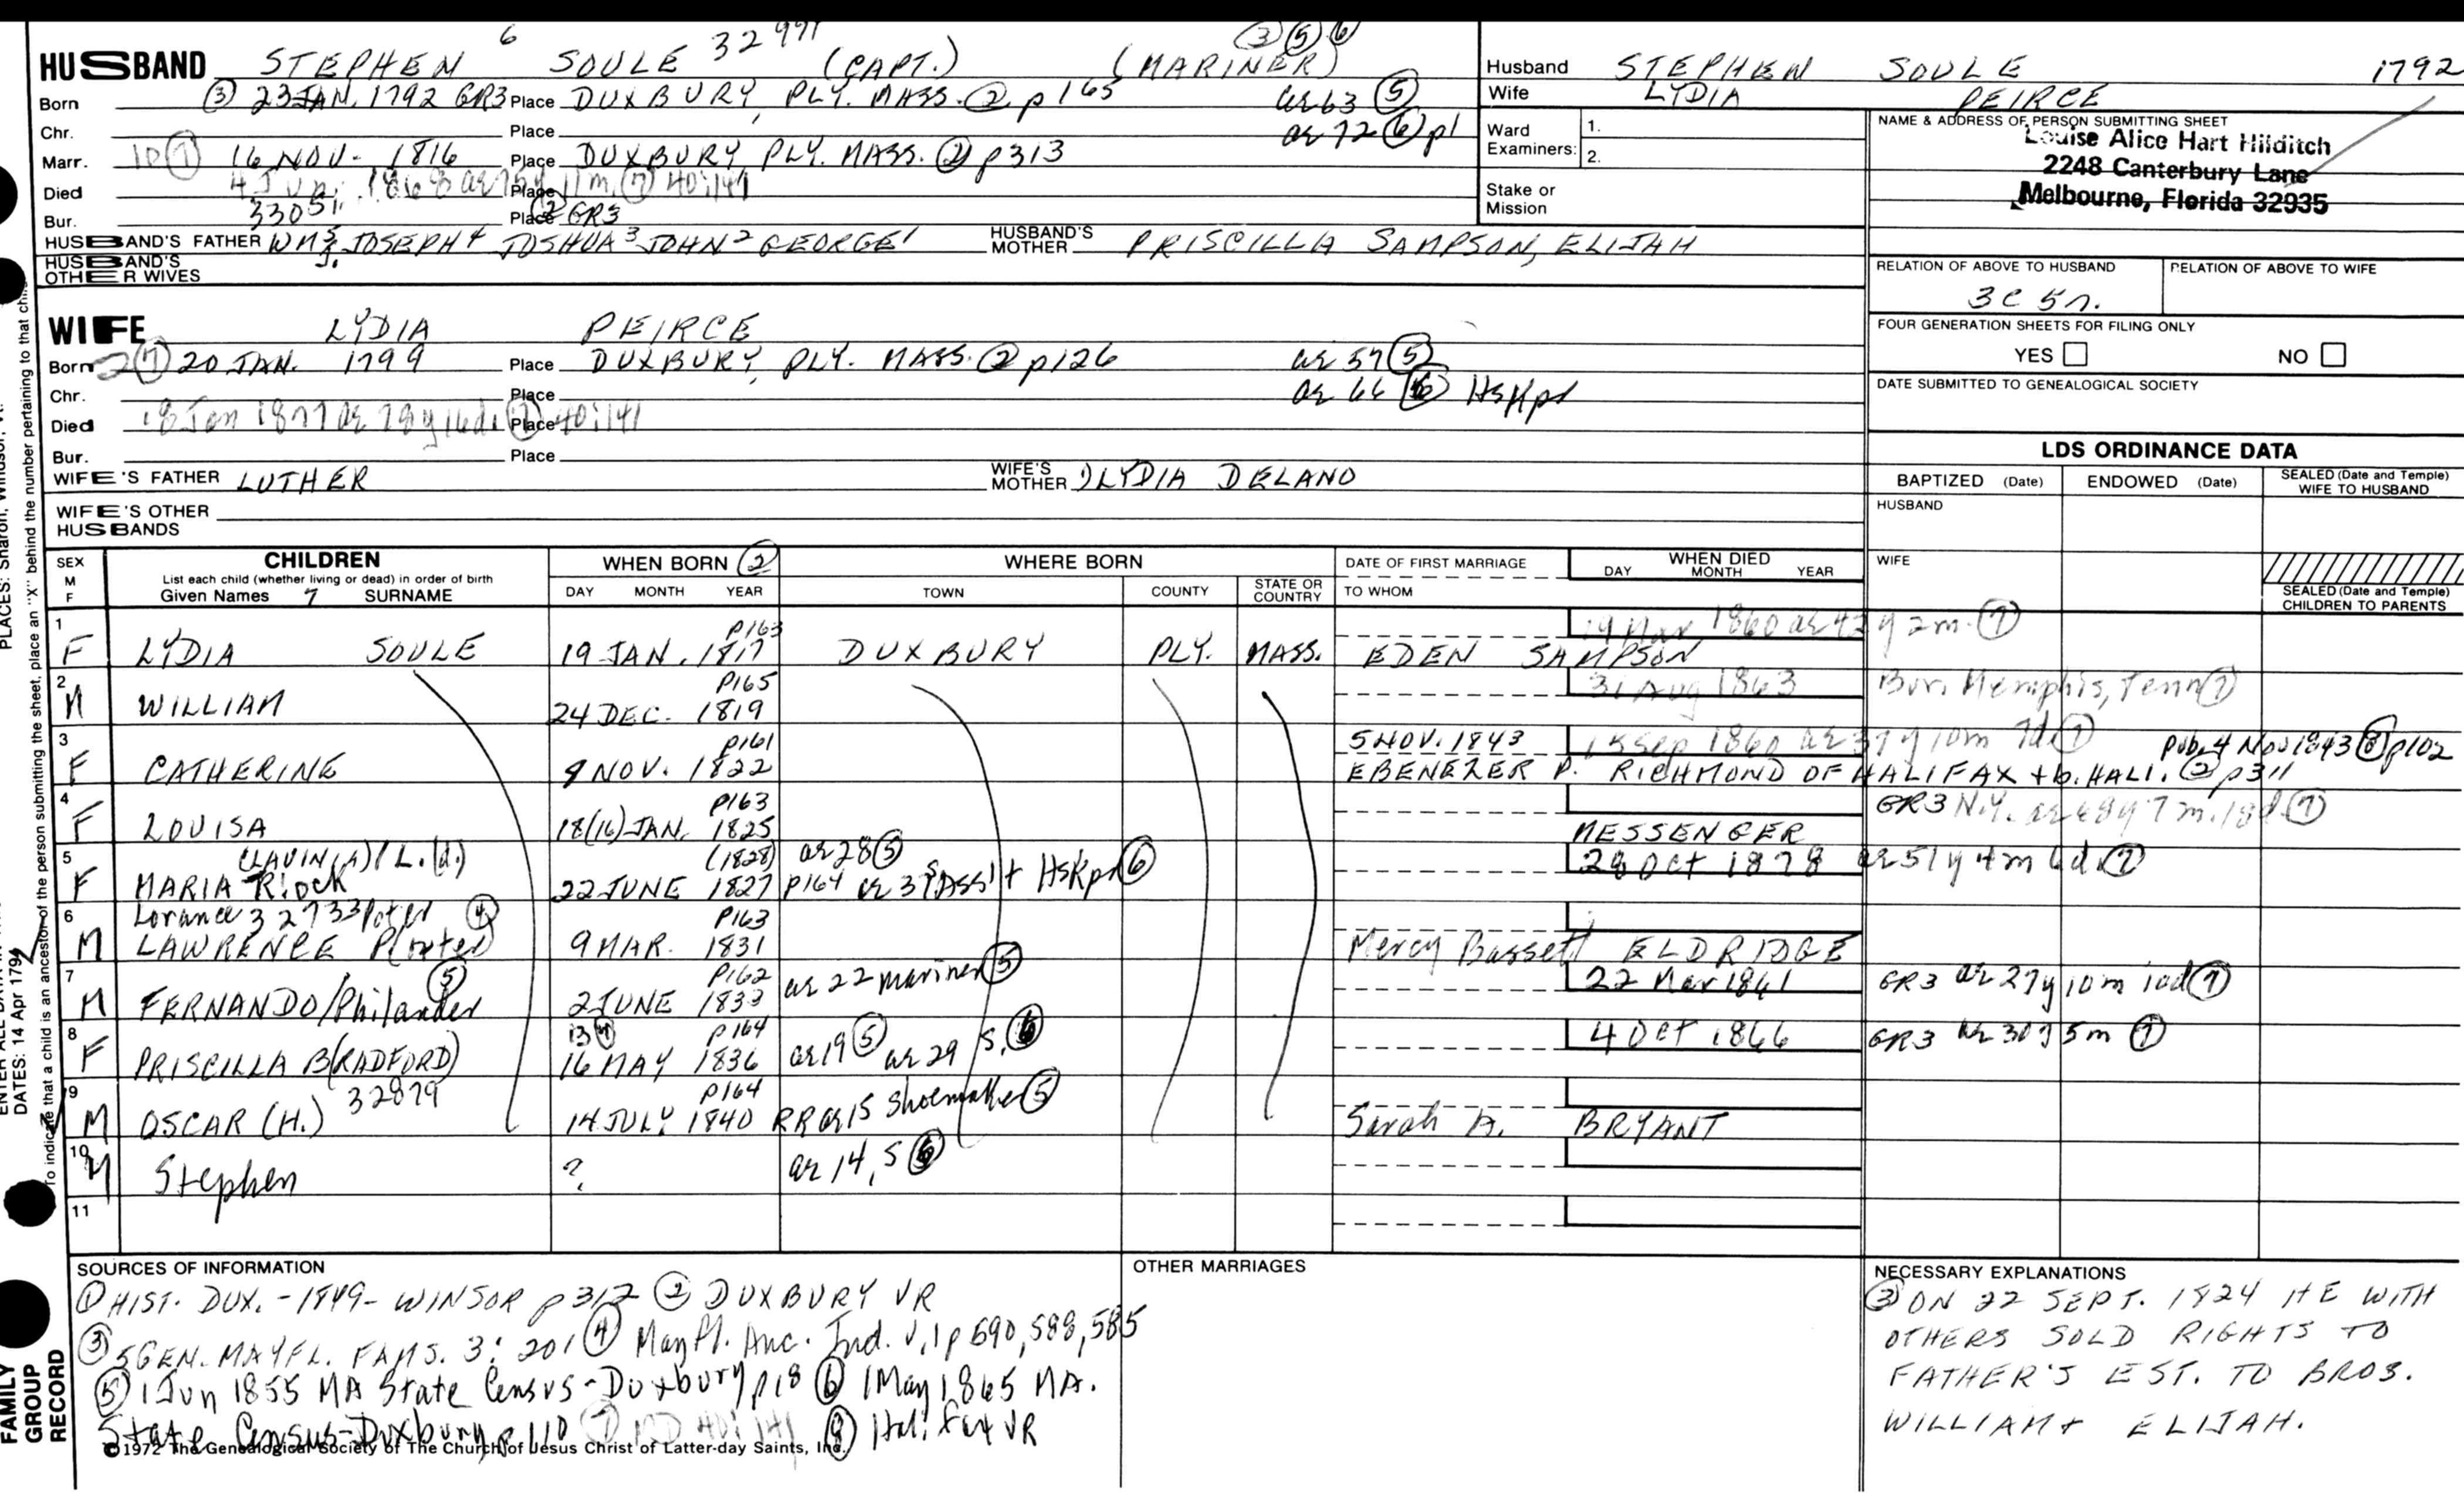 HUSBAND STEPHEN 6 SOULE 32971 (CAPT.) (MARINER) ③⑤⑥
Born ③ 23 JAN. 1792 GR3 Place DUXBURY, PLY. MASS. ② p165 ae 63 ⑤
Chr. Place ae 72 ⑥ p1
Marr. 16 NOV. 1816 Place DUXBURY, PLY. MASS. ② p313
Died 4 Jun. 1868 ae 75y 11m. ⑦ 40:141 Place
Bur. 33051 Place ② GR3
HUSBAND'S FATHER WM5 JOSEPH4 JOSHUA3 JOHN2 GEORGE1 HUSBAND'S MOTHER PRISCILLA SAMPSON, ELIJAH
HUSBAND'S OTHER WIVES
Husband STEPHEN SOULE 1792
Wife LYDIA PEIRCE
Ward Examiners: 1. 2.
Stake or Mission
NAME & ADDRESS OF PERSON SUBMITTING SHEET
Louise Alice Hart Hilditch
2248 Canterbury Lane
Melbourne, Florida 32935
RELATION OF ABOVE TO HUSBAND RELATION OF ABOVE TO WIFE
3C 5r.
FOUR GENERATION SHEETS FOR FILING ONLY
YES NO
DATE SUBMITTED TO GENEALOGICAL SOCIETY
WIFE LYDIA PEIRCE
Born 20 JAN. 1799 Place DUXBURY, PLY. MASS. ② p126 ae 57 ⑤
Chr. Place ae 66 ⑥ HsKpr
Died 18 Jan 1877 ae 78y 16d. ⑦ Place 40:141
Bur. Place
WIFE'S FATHER LUTHER WIFE'S MOTHER LYDIA DELANO
WIFE'S OTHER HUSBANDS
LDS ORDINANCE DATA
BAPTIZED (Date) ENDOWED (Date) SEALED (Date and Temple) WIFE TO HUSBAND
HUSBAND
WIFE
SEALED (Date and Temple) CHILDREN TO PARENTS
SEX M F CHILDREN WHEN BORN ② WHERE BORN DATE OF FIRST MARRIAGE WHEN DIED
List each child (whether living or dead) in order of birth
Given Names 7 SURNAME DAY MONTH YEAR TOWN COUNTY STATE OR COUNTRY TO WHOM DAY MONTH YEAR
1 p163 19 Mar 1860 ae 42y 2m. ⑦
F LYDIA SOULE 19 JAN. 1817 DUXBURY PLY. MASS. EDEN SAMPSON
2 P165 31 Aug 1863 Bur. Memphis, Tenn ⑦
M WILLIAM 24 DEC. 1819
3 p161 5 NOV. 1843 15 Sep 1860 ae 37y 10m 7d ⑦ pub. 4 Nov 1843 ⑧ p102
F CATHERINE 9 NOV. 1822 EBENEZER P. RICHMOND OF HALIFAX + b. HALI. ② p311
4 P163 GR3 N.Y. ae 48y 7m. 18d. ⑦
F LOUISA 18(16) JAN. 1825 MESSENGER
5 (LAVIN(A)/L.(d.) (1828) ae 28 ⑤ 28 Oct 1878 ae 51y 4m 6d ⑦
F MARIA 22 JUNE 1827 p164 ae 37 Ass't HsKpr ⑥
6 Lorance 32733 ④ P163
M LAWRENCE 9 MAR. 1831 Mercy Bassett ELDRIDGE
7 ⑤ P162 ae 22 mariner ⑤ 22 Mar 1861 GR3 ae 27y 10m 10d ⑦
M FERNANDO/Philander 2 JUNE 1833
8 13 ④ p164 ae 19 ⑤ ae 29 S. ⑥ 4 Oct 1866 GR3 ae 30y 5m ⑦
F PRISCILLA B(RADFORD) 16 MAY 1836
9 32879 P164
M OSCAR (H.) 14 JULY 1840 ae 15 shoemaker ⑤ Sarah A. BRYANT
10
M Stephen ? ae 14, S ⑥
11
SOURCES OF INFORMATION
① HIST. DUX. -1849- WINSOR p312 ② DUXBURY VR
③ 5GEN. MAYFL. FAMS. 3:201 ④ Mayfl. Anc. Ind. V.1 p 590, 588, 585
⑤ 1 Jun 1855 MA State Census-Duxbury p18 ⑥ 1 May 1865 MA.
State Census-Duxbury p110 ⑦ 40:141 ⑧ Halifax VR
©1972 The Genealogical Society of The Church of Jesus Christ of Latter-day Saints, Inc.
OTHER MARRIAGES
NECESSARY EXPLANATIONS
③ ON 22 SEPT. 1824 HE WITH
OTHERS SOLD RIGHTS TO
FATHER'S EST. TO BROS.
WILLIAM + ELIJAH.
FAMILY GROUP RECORD
DATES: 14 Apr 1794
PLACES: Sharon, Windsor, Vt.
To indicate that a child is an ancestor of the person submitting the sheet, place an "X" behind the number pertaining to that